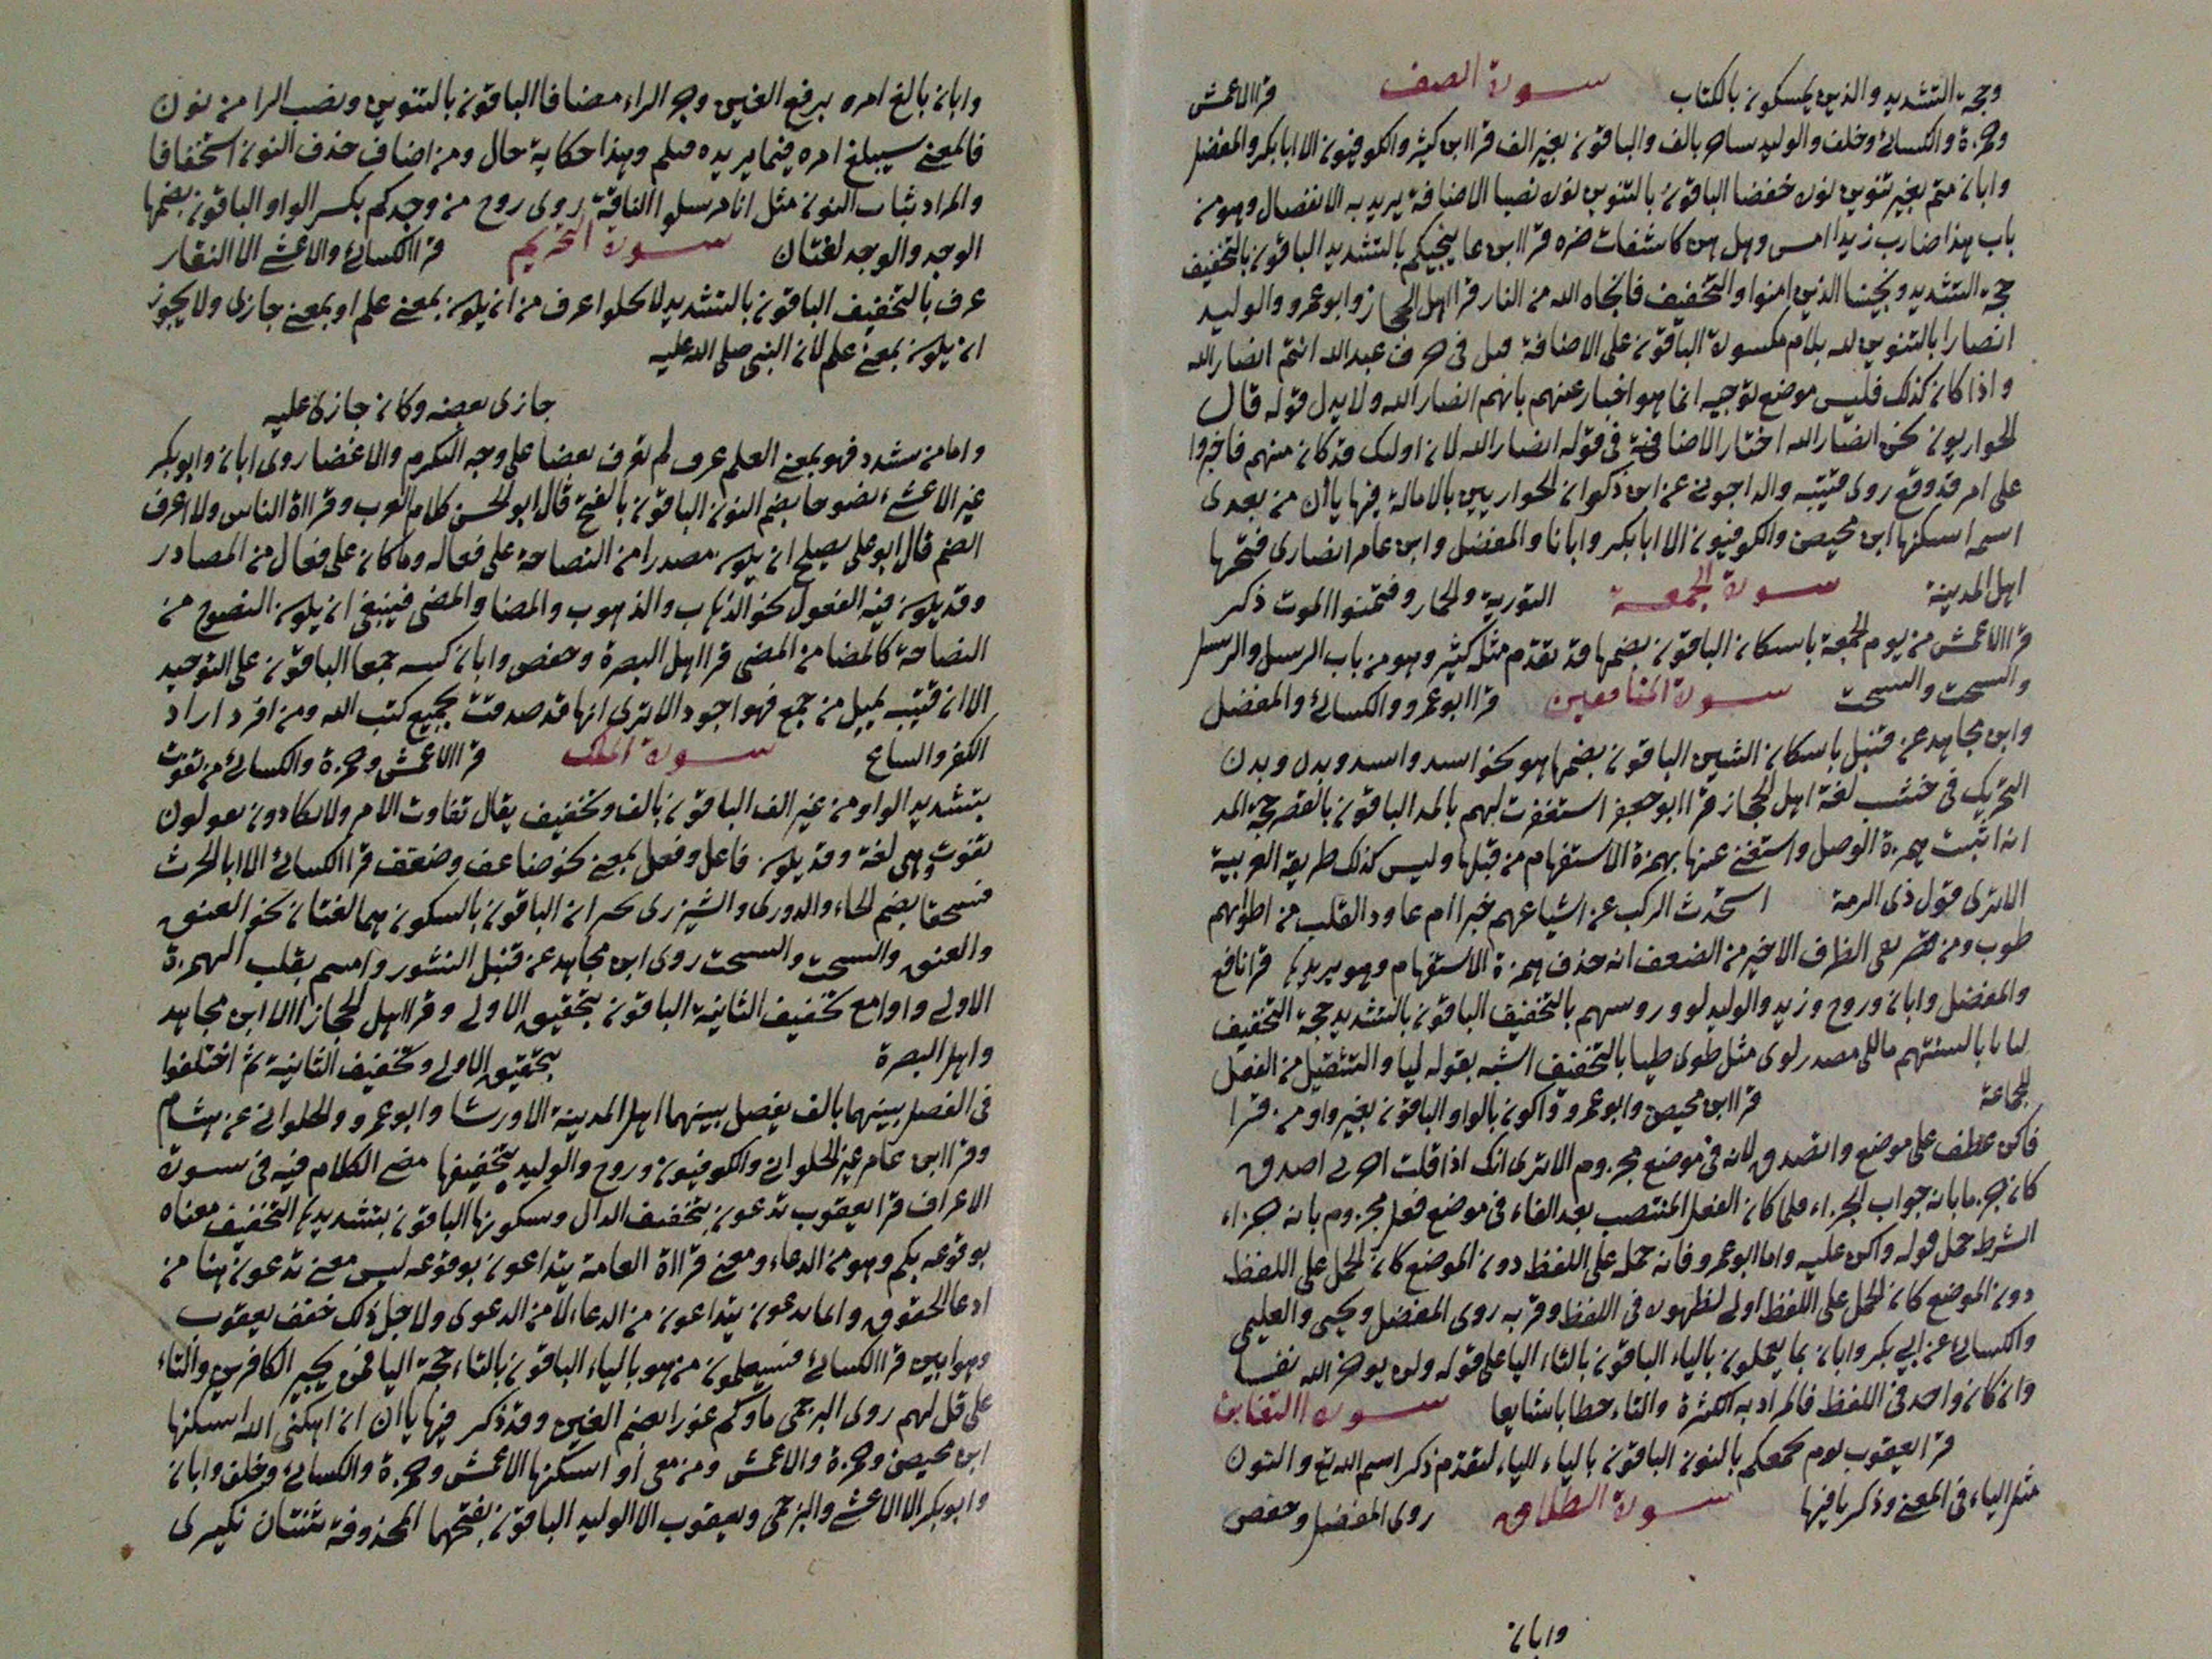 وجه التشديد والذين يمسكون بالكتاب سورة الصف قرا الاعمش
وحمزة والكسائي وخلف والوليد ساحر بالف والباقون بغير الف قرا ابن كثير والكوفيون الا ابا بكر والمفضل
وابان متم بغير تنوين نوره خفضا الباقون بالتنوين نوره نصبا الاضافة يريد به الانفصال وهو من
باب هذا ضارب زيدا امس وهل هن كاشفات ضره قرا ابن عا ينجيكم بالتشديد الباقون بالتخفيف
حجة التشديد ونجينا الذين امنوا والتخفيف فانجاه الله من النار قرا اهل الحجاز وابو عمرو والوليد
انصارا بالتنوين لله بلام مكسورة الباقون على الاضافة قبل في حرف عبد الله انتم انصار الله
واذا كان كذلك فليس موضع توجيه انما هو اخبار عنهم بانهم انصار الله ولا يدل قوله قال
الحواريون نحن انصار الله اختار الاضافة في قوله انصار الله لان اولئك قد كان منهم فاخبروا
على امر قد وقع روى قتيبة والداجوني عن ابن ذكوان الحواريين بالامالة فيها ياأن من بعدى
اسمه اسكنها ابن محيصن والكوفيون الا ابا بكر وابانا والمفضل وابن عامر انصارى فتحها
اهل المدينة سورة الجمعة التورية والحمار وفتمنوا الموت ذكر
قرا الاعمش من يوم الجمعة باسكان الباقون بضمها قد تقدم مثله كثير وهو من باب الرسل والرسل
والسحت والسحت سورة المنافقين قرا ابو عمرو والكسائي والمفضل
وابن مجاهد عن قنبل باسكان الشين الباقون بضمها هو نحو اسد واسد وبدن وبدن
التحريك في خشب لغة اهل الحجاز قرا ابو جعفر استغفرت لهم بالمد الباقون بالقصر حجة المد
انه اثبت همزة الوصل واستغنى عنها بهمزة الاستفهام من قبلها وليس كذلك طريقة العربية
الا ترى قول ذى الرمة استحدث الركب عن اشياعهم خبرا ام عاود القلب من اطرابهم
طرب ومن قصر الاخير من الضعف انه حذف همزة الاستفهام وهو يريدها قرا نافع
والمفضل وابان وروح وزيد والوليد لووا روسهم بالتخفيف الباقون بالتشديد حجة التخفيف
ليا بالسنتهم مصدر لوى مثل طوى طيا بالتخفيف اشبه بقوله ليا والتثقيل من الفعل
للجماعة قرا ابن محيصن وابو عمرو واكون بالواو الباقون بغير واو من قرا
فاكن عطف على موضع واتصدق لانه في موضع مجزوم الا ترى انك اذا قلت اخرني اصدق
كان جزما بانه جواب الجزاء فلما كان الفعل المنتصب بعد الفاء في موضع فعل مجزوم بانه جزاء
الشرط حمل قوله واكن عليه واما ابو عمرو فانه حمله على اللفظ دون الموضع كان الحمل على اللفظ
دون الموضع كان الحمل على اللفظ اولى لظهوره في اللفظ وقربه روى المفضل ويحيى والعليمي
والكسائي عن ابي بكر وابان بما يعملون بالياء الباقون بالتاء اليا على قوله ولن يوخر الله نفسا
وان كان واحد في اللفظ فالمراد به الكثرة والتاء خطابا شايعا سورة التغابن
قرا يعقوب يوم نجمعكم بالنون الباقون بالياء الياء لتقدم ذكر اسم الله تع والنون
مثل الياء في المعنى وذكر ما فيها سورة الطلاق روى المفضل وحفص
وابان
وابان بالغ امره برفع الغين وجر الراء مضافا الباقون بالتنوين ونصب الرا من نون
فالمعنى سيبلغ امره فيما يريده فيلم وهذا حكاية حال ومن اضاف حذف النون استخفافا
والمراد ثبات النون مثل انا مرسلوا الناقة روى روح من وجدكم بكسر الواو الباقون بضمها
الوجد والوجد لغتان سورة التحريم قرا الكسائي والاعشى الا النقار
عرف بالتخفيف الباقون بالتشديد لا يخلوا عرف من ان يكون بمعنى علم او بمعنى جازى ولا يجوز
ان يكون بمعنى علم لان النبي صلى الله عليه
جازى بعضه وكان جازى عليه
واما من شدد فهو بمعنى العلم عرف لم يعرف بعضا على وجه التكرم والاغضا روى ابان وابو بكر
غير الاعشى نصوحا بضم النون الباقون بالفتح قال ابو الحسن كلام العرب وقراة الناس ولا اعرف
الضم قال ابو على يصلح ان يكون مصدرا من النصاحة على فعاله وما كان على فعال من المصادر
وقد يكون فيه الفعول نحو الذهاب والذهوب والمضا والمضي فينبغي ان يكون النصوح من
النصاحة كالمضا من المضي قرا اهل البصرة وحفص وابان كتبه جمعا الباقون على التوحيد
الا ان قتيبة يميل من جمع فهو اجود الا ترى انها قد صدقت بجميع كتب الله ومن افرد اراد
الكثرة والسايع سورة الملك قرا الاعمش وحمزة والكسائي من تفوت
بتشديد الواو من غير الف الباقون بالف وتخفيف يقال تفاوت الامر ولا يكادون يقولون
تفوت وهي لغة وقد يكون فاعل وفعل بمعنى نحو ضاعف وضعف قرا الكسائي الا ابا الحرث
فسحقا بضم الحاء والدورى والشيزرى الباقون بالسكون هما لغتان نحو العنق
والعنق والسحت والسحت روى ابن مجاهد عن قنبل النشور وامنتم بقلب الهمزة
الاولى واوا مع تخفيف الثانية الباقون بتحقيق الاولى وقرا اهل الحجاز الا ابن مجاهد
واهل البصرة بتحقيق الاولى وتخفيف الثانية ثم اختلفوا
في الفصل بينهما بالف يفصل بينهما اهل المدينة الا ورشا وابو عمرو والحلواني عن هشام
وقرا ابن عامر غير الحلواني والكوفيون وروح والوليد بتحقيقها مضى الكلام فيه في سورة
الاعراف قرا يعقوب تدعون بتخفيف الدال وسكونها الباقون بتشديدها التخفيف معناه
بوقوعه بكم وهو من الدعاء ومعنى قراة العامة يتداعون بوقوعه ليس معنى تدعون هنا من
ادعا الحقوق وانما تدعون يتداعون من الدعا لا من الدعوى ولاجل ذلك خفف يعقوب
وهو ابين قرا الكسائي فسيعلمون من هو بالياء الباقون بالتاء حجة اليا فمن يجير الكافرين والتاء
على قل لهم روى البرجمى ماوكم غورا بضم الغين وقد ذكر فيها ياان ان اهلكنى الله اسكنها
ابن محيصن وحمزة والاعمش ومن معى أو اسكنها الاعمش وحمزة والكسائي وخلف وابان
وابو بكر الا الاعشى والبرجمى ويعقوب الا الوليد الباقون بفتحهما المحذوفة ثنتان نكيرى